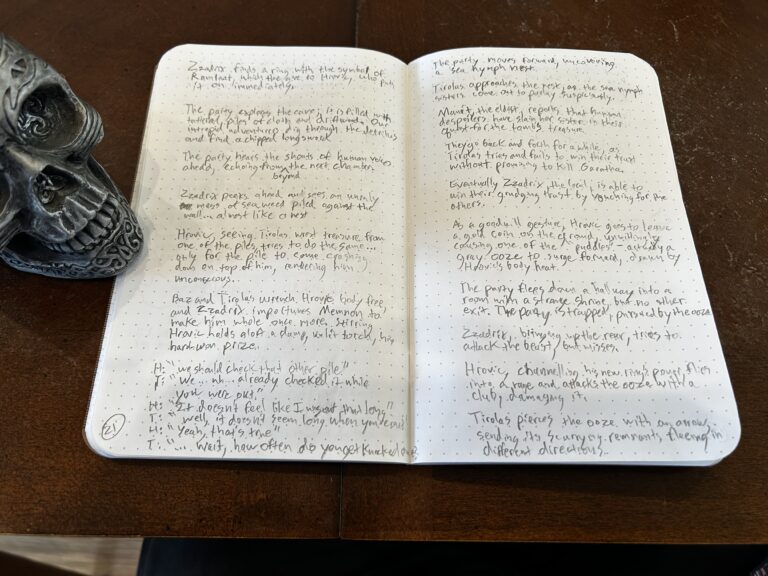 Zzadrix finds a ring with the symbol of
Ramlaat, which she give to Hrovic, who puts
it on immediately.
The party explores the cave; it is filled with
tattered piles of cloth and driftwood. Our
intrepid adventurers dig through the detritus
and find a chipped longsword.
The party hears the shouts of human voices
ahead, echoing from the next chamber.
beyond
Zzadrix peaks ahead and sees an unruly
mass of seaweed piled against the
wall... almost like a nest
Hrovic, seeing Tirolas wrest treasure from
one of the piles, tries to do the same...
only for the pile to come crashing
down on top of him, rendering him
unconscious.
Baz and Tirolas wrench Hrovic's body free
and Zzadrix importunes Memnon to
make him whole once more. Stirring
Hrovic holds aloft a damp, unlit torch, his
hardwon prize.
H: "we should check that other pile"
T: "We... uh... already checked it while
you were out."
H: "It doesn't feel like I was out that long"
T: "well, it doesn't seem long when you're out"
H: "Yeah, that's true"
T: "... wait, how often do you get knocked out?
21
The party moves forward, uncovering
a sea nymph nest.
Tirolas approaches the nest, as the sea nymph
sisters come out to parley suspiciously.
the eldest, reports that human
despoilers have slain her sister in their
quest for the family treasure.
They go back and forth for a while, as
Tirolas tries and fails to win their trust
without promising to kill Garatha.
Eventually Zzadrix, the local, is able to
win their grudging trust by vouching for the
others.
As a goodwill gesture, Hrovic goes to leave
a gold coin on the ground, unwittingly
causing one of the "puddles" - actually a
gray ooze to surge forward, drawn by
Hrovic's body heat.
The party flees down a hallway into a
room with a strange shrine, but no other
exit. The party is trapped, pursued by the ooze
Zzadrix, bringing up the rear, tries to
attack the beast, but misses.
Hrovic, channelling his new ring's power, flies
into a rage and attacks the ooze with a
club, damaging it.
Tirolas pierces the ooze with an arrow
sending its scurrying remnants fleeing in
different directions...